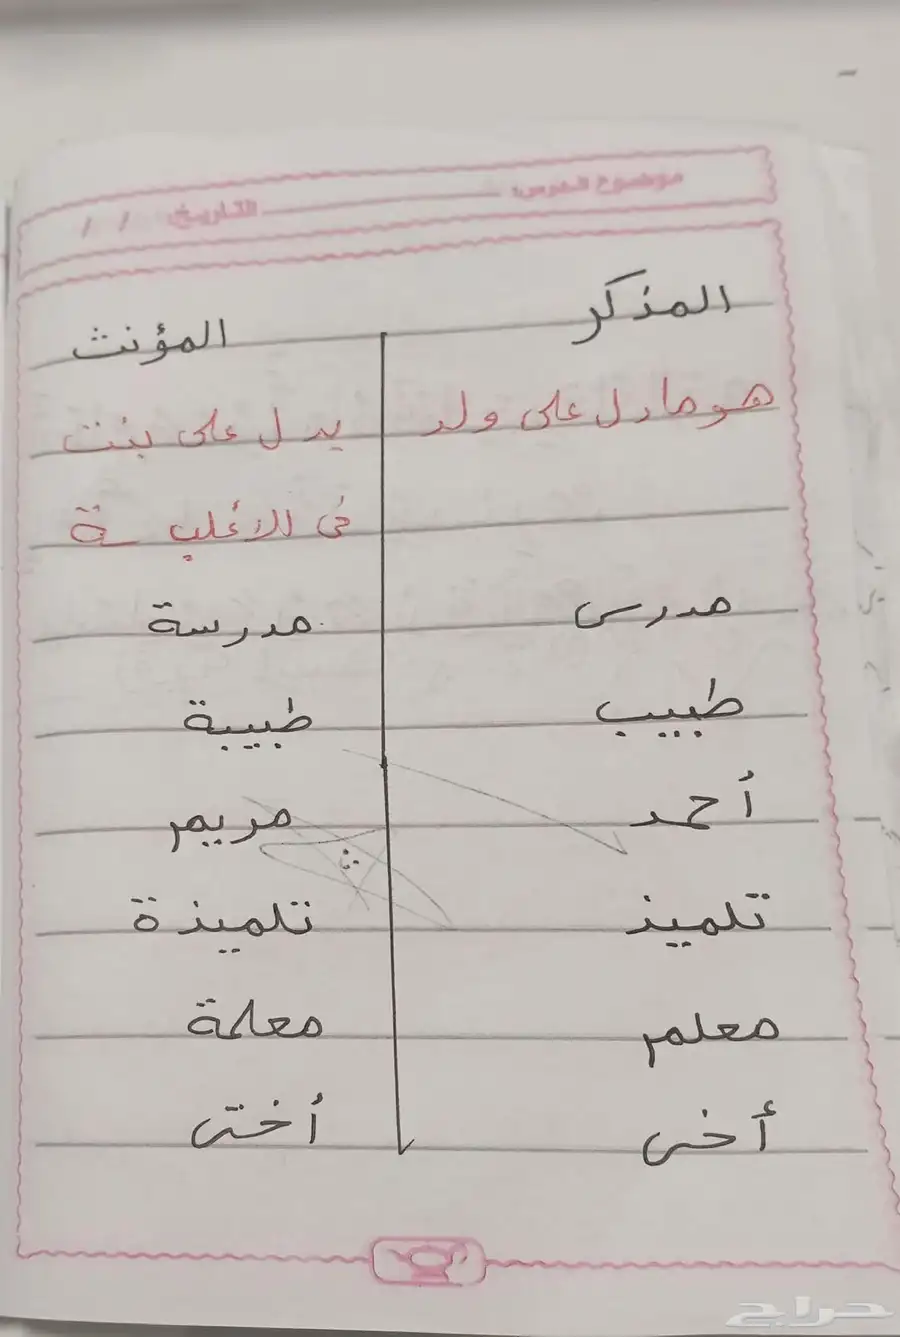 موضوع الدرس: التاريخ / /
المذكر المؤنث
هو ما دل على ولد يدل على بنت
فى الأغلب ـة
مدرس مدرسة
طبيب طبيبة
أحمد مريم
تلميذ تلميذة
معلم معلمة
أخى أختى
حراج